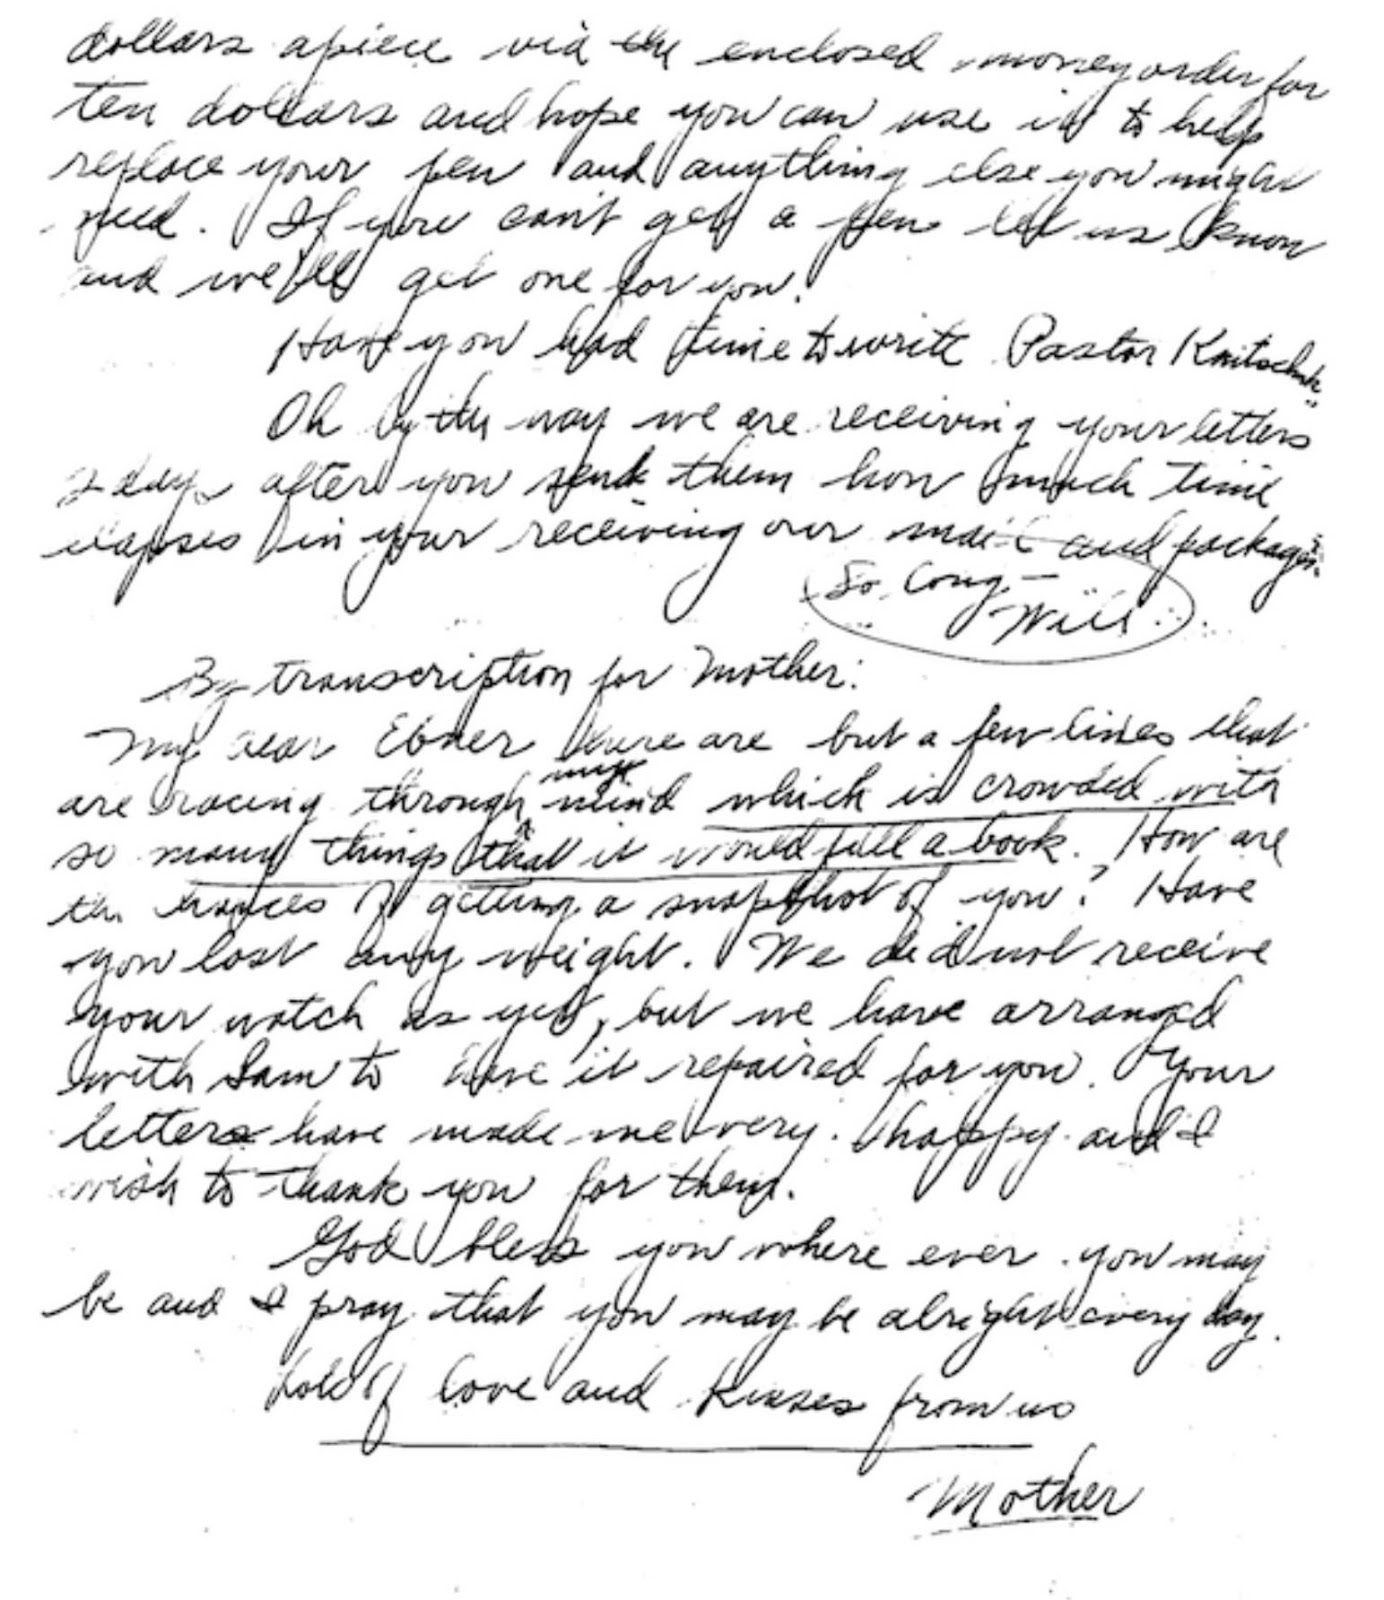 dollars apiece via the enclosed moneyorder for
ten dollars and hope you can use it to help
replace your pen and anything else you might
need. If you can't get a pen let us know
and we'll get one for you.
Have you had time to write Pastor
Oh by the way we are receiving your letters
2 days after you send them how much time
elapses in your receiving our mail and packages.
So Long -
Will.
By transcription for Mother:
My dear Ebner there are but a few lines that
are racing through my mind which is crowded with
so many things that it would fill a book. How are
the chances of getting a snapshot of you? Have
you lost any weight. We did not receive
your watch as yet, but we have arranged
with Sam to have it repaired for you. Your
letters have made me very happy and I
wish to thank you for them.
God bless you where ever you may
be and I pray that you may be alright every day.
Lots of love and kisses from us
Mother